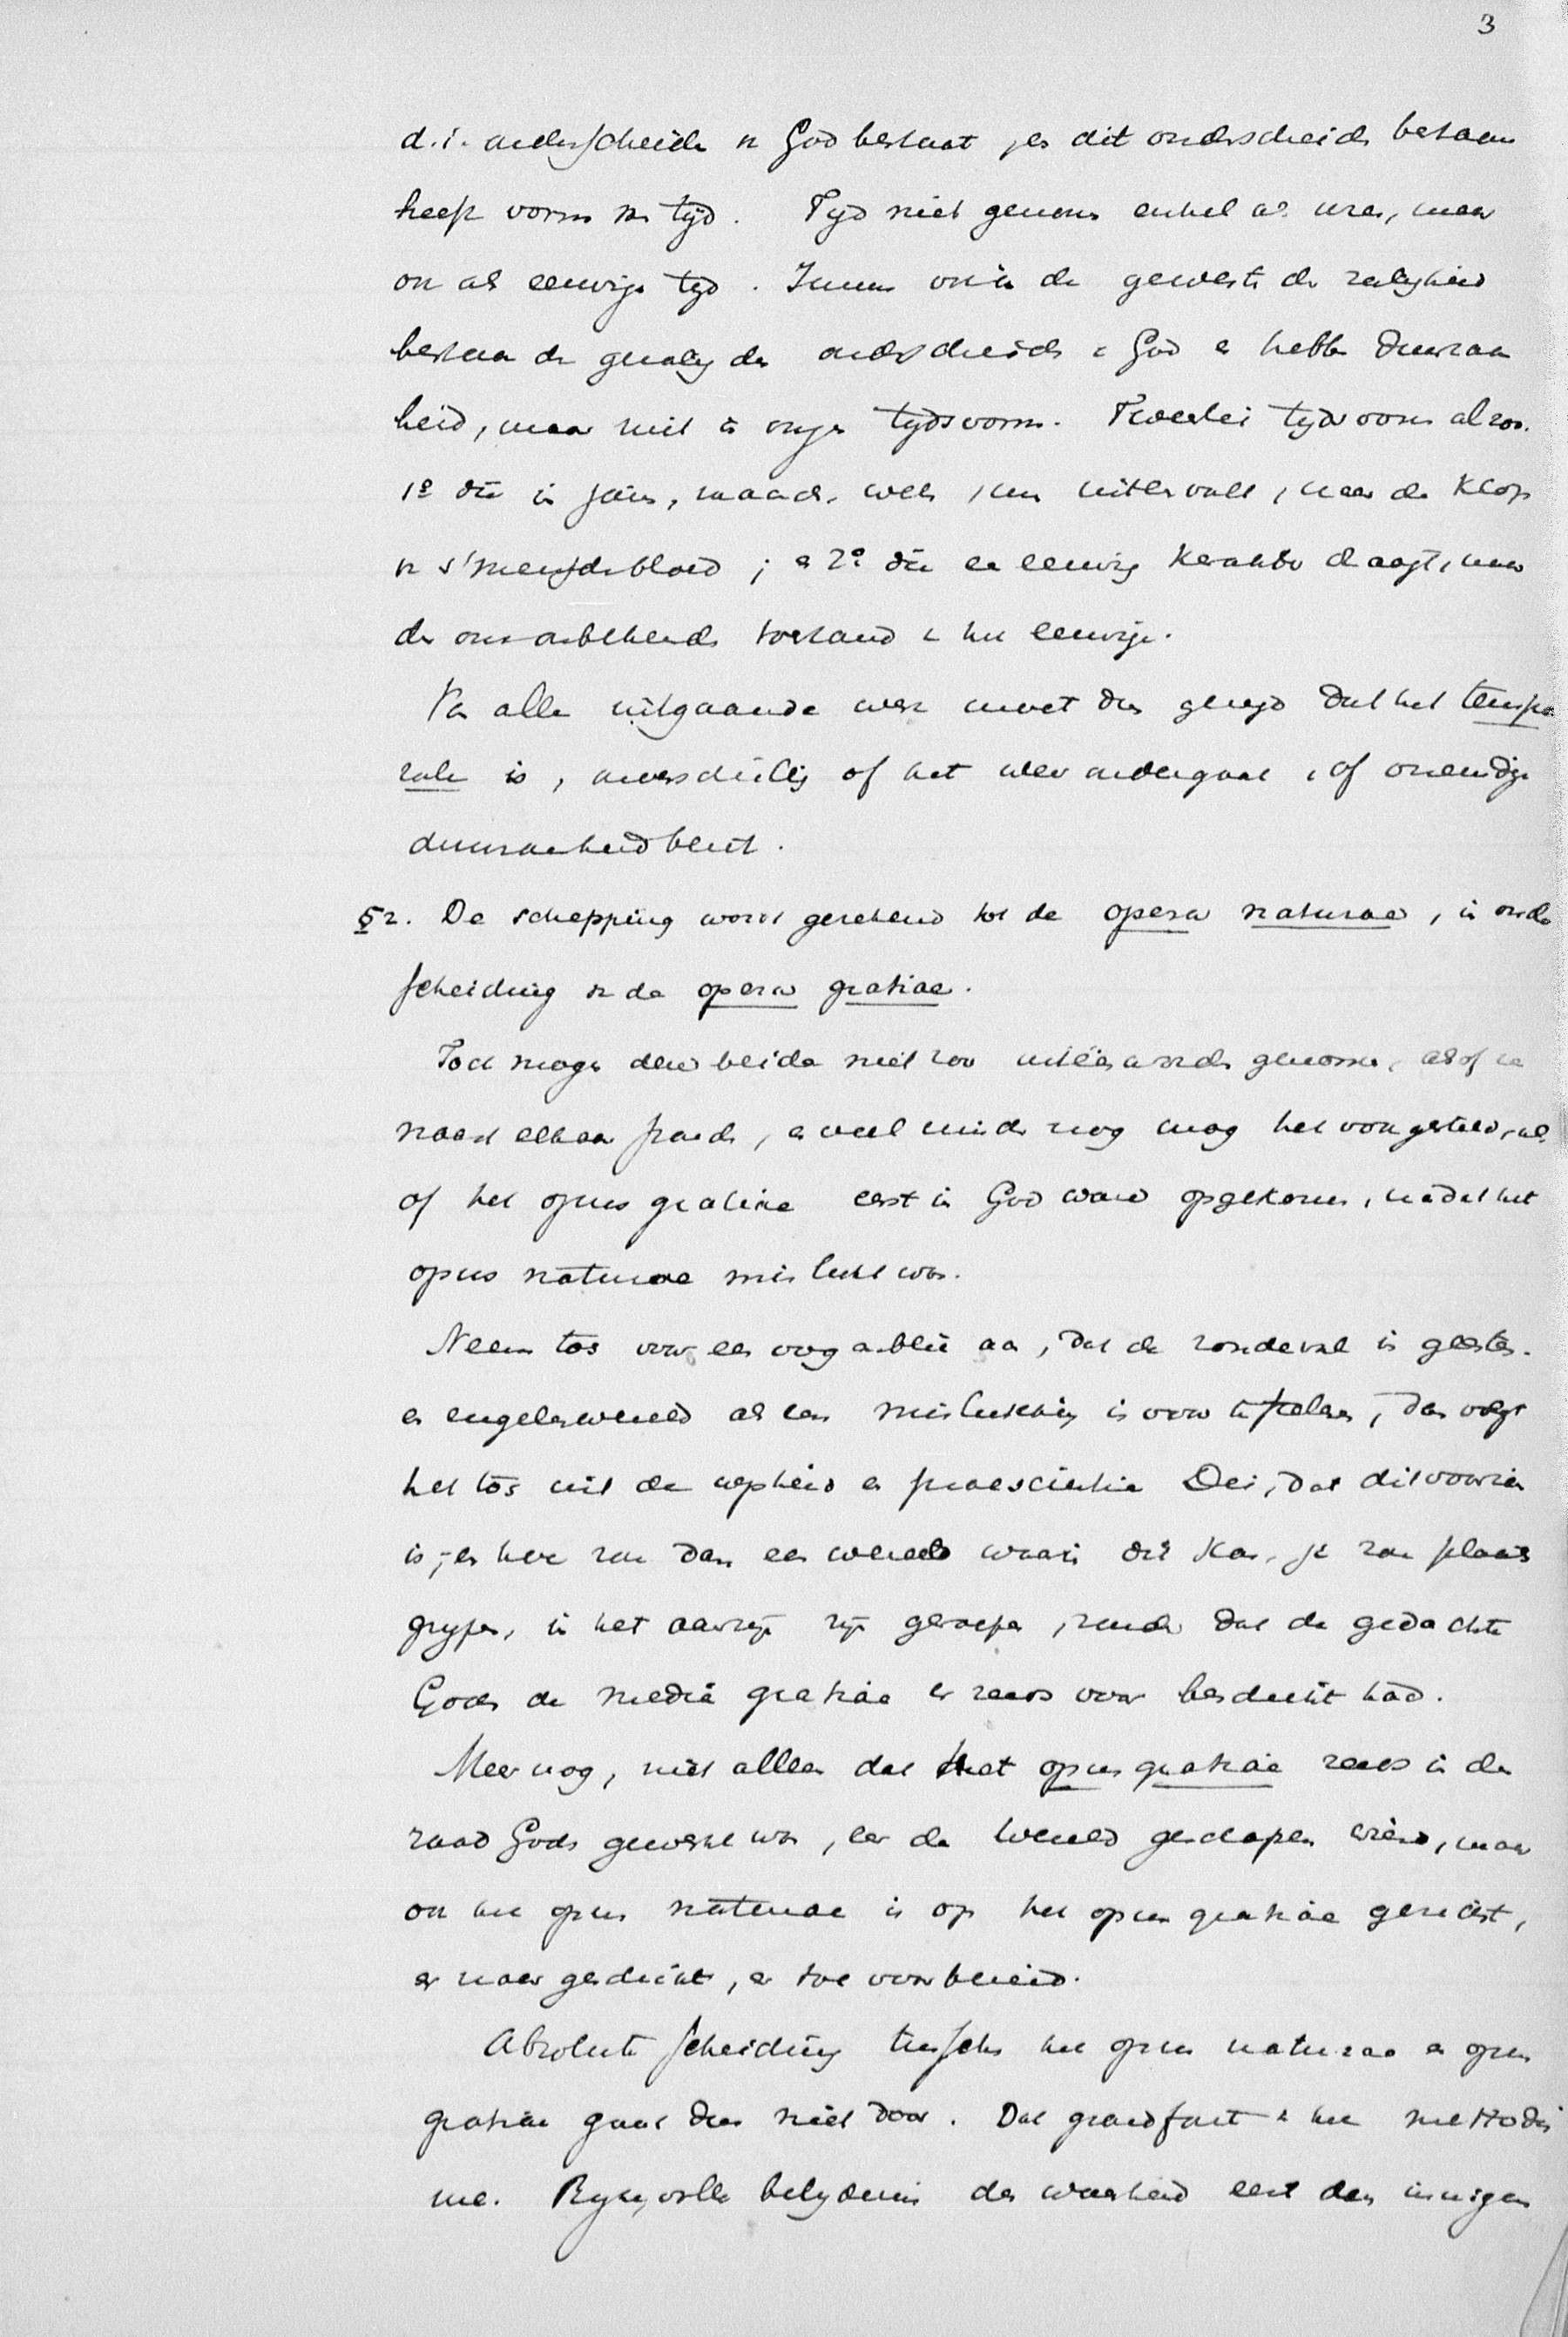 3
d.i. onderscheiden v God bestaat, en dit onderscheiden bestaan
heeft vorm v tijd. Tijd niet genomen enkel als uren, maar
ook als eeuwige tijd. Immers ook in de gewesten der zaligheid
bestaan de gezaligden onderscheiden v God en hebben duurzaam
heid, maar niet in onze tijdsvorm. Tweeërlei tijdsvorm alzoo.
1º die in jaren, maanden, weken, uren, naar de klop
v 's menschenbloed; en 2º die een eeuwig karakter draagt, naar
de toestand v het eeuwige.
Van alle uitgaande werk moet dus gezegd dat het tempo
rale is, onverschillig of het weer ondergaat, of oneindige
duurzaamheid bezit.
§2. De schepping wordt gerekend tot de opera naturae, in onder
scheiding v de opera gratiae.
Toch mogen deze beide niet zoo genomen, alsof ze
naast elkaar stonden, en veel minder nog mag het voorgesteld, als
of het opus gratiae eerst in God ware opgekomen, nadat het
opus naturae mislukt was.
Neem toch voor een oogenblik aan, dat de zondeval in geesten-
en engelenwereld als een mislukking is voor te stellen, dan volgt
het toch uit de wijsheid en praescientia Dei, dat dit voorzien
is, en hoe zou dan een wereld waarin dit kon, ja zou plaats
grijpen, in het aanzijn zijn geroepen, zonder dat de gedachte
Gods de media gratiae er reeds voor beschikt had.
Meer nog, niet alleen dat het opus gratiae reeds in den
raad Gods gewerkt was, eer de wereld geschapen wierd, maar
ook het opus naturae is op het opus gratiae gericht,
er naar geschikt, er toe voorbereid.
Absolute scheiding tusschen het opus naturae en opus
gratiae gaat dus niet door. Dat grondfout v het methodis
me. Rijke, volle belijdenis der waarheid eert den innigen